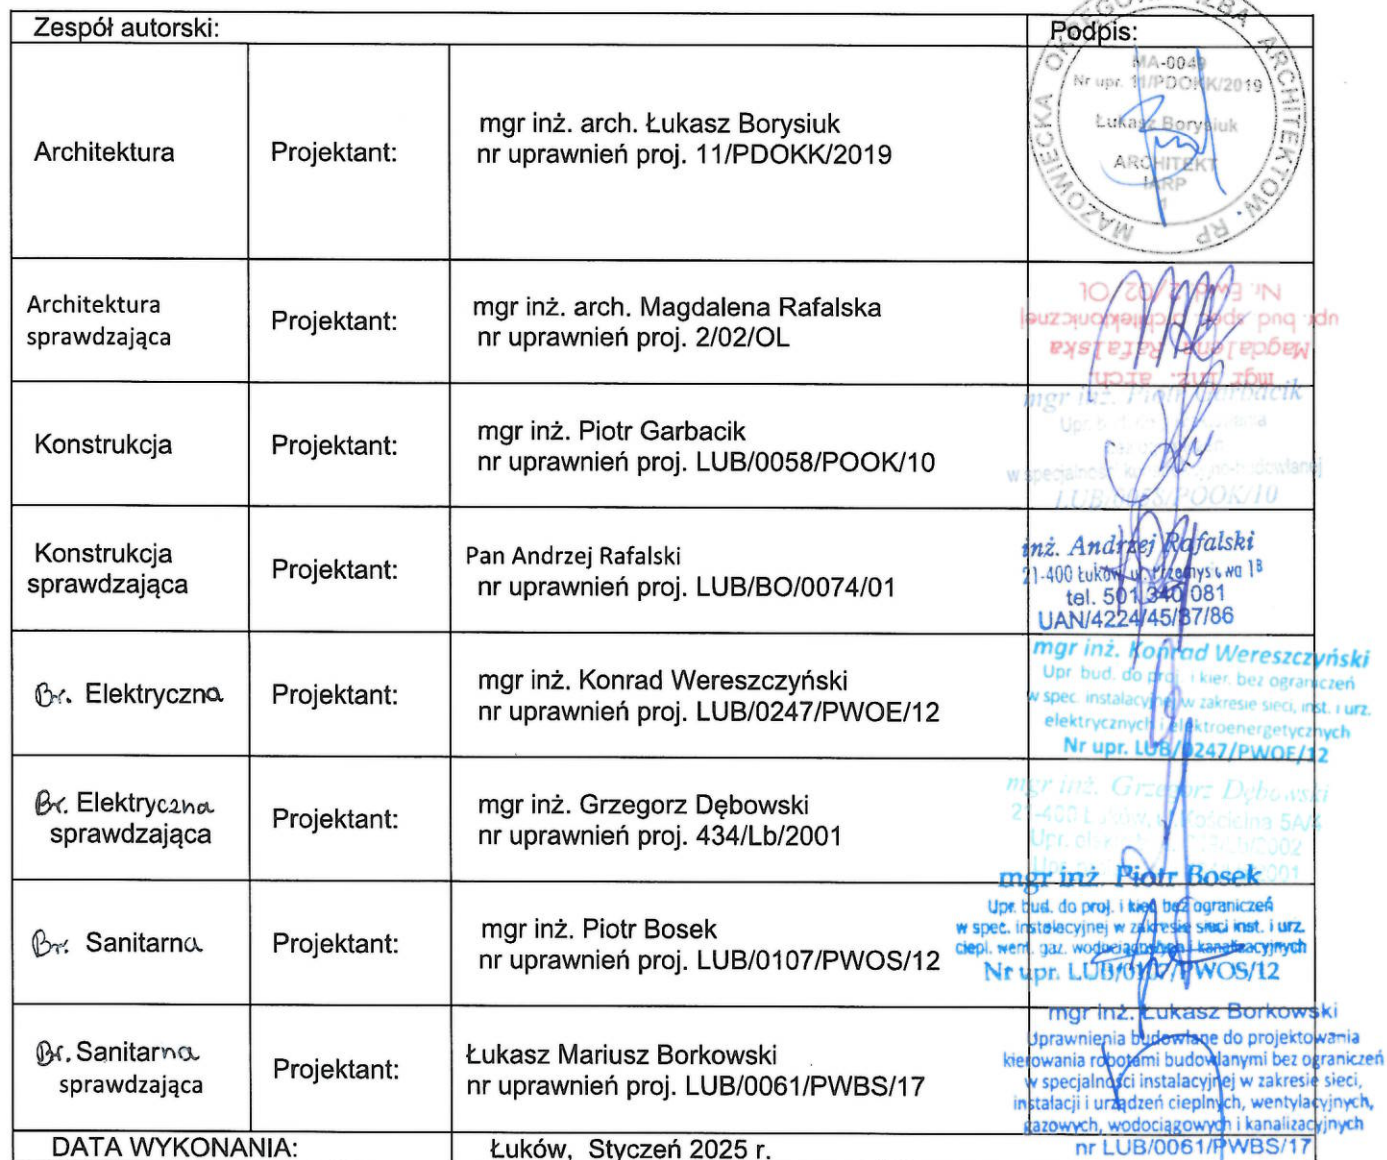 Zespół autorski:
Podpis:
Architektura
Projektant:
mgr inż. arch. Łukasz Borysiuk
nr uprawnień proj. 11/PDOKK/2019
MAZOWIECKA OKRĘGOWA IZBA ARCHITEKTÓW RP
MA-0049
Nr upr. 11/PDOKK/2019
Łukasz Borysiuk
ARCHITEKT
IARP
1
Architektura
sprawdzająca
Projektant:
mgr inż. arch. Magdalena Rafalska
nr uprawnień proj. 2/02/OL
mgr inż. arch.
Magdalena Rafalska
upr. bud spec architektonicznej
Nr. Ewid 2/02/OL
Konstrukcja
Projektant:
mgr inż. Piotr Garbacik
nr uprawnień proj. LUB/0058/POOK/10
mgr inż. Piotr Garbacik
w specjalności
LUB/0058/POOK/10
Konstrukcja
sprawdzająca
Projektant:
Pan Andrzej Rafalski
nr uprawnień proj. LUB/BO/0074/01
inż. Andrzej Rafalski
21-400 Łuków, ul. Przemysłowa 1B
tel. 501 340 081
UAN/4224/45/87/86
Br. Elektryczna
Projektant:
mgr inż. Konrad Wereszczyński
nr uprawnień proj. LUB/0247/PWOE/12
mgr inż. Konrad Wereszczyński
Upr bud. do proj. i kier. bez ograniczeń
w spec. instalacyjnej w zakresie sieci, inst. i urz.
elektrycznych i elektroenergetycznych
Nr upr. LUB/0247/PWOE/12
Br. Elektryczna
sprawdzająca
Projektant:
mgr inż. Grzegorz Dębowski
nr uprawnień proj. 434/Lb/2001
mgr inż. Grzegorz Dębowski
21-400 Łuków, ul. Kościelna 5A/4
Br. Sanitarna
Projektant:
mgr inż. Piotr Bosek
nr uprawnień proj. LUB/0107/PWOS/12
mgr inż. Piotr Bosek
Upr. bud. do proj. i kier. bez ograniczeń
w spec. instalacyjnej w zakresie sieci inst. i urz.
ciepl. went. gaz. wodociągowych i kanalizacyjnych
Nr upr. LUB/0107/PWOS/12
Br. Sanitarna
sprawdzająca
Projektant:
Łukasz Mariusz Borkowski
nr uprawnień proj. LUB/0061/PWBS/17
mgr inż. Łukasz Borkowski
Uprawnienia budowlane do projektowania
kierowania robotami budowlanymi bez ograniczeń
w specjalności instalacyjnej w zakresie sieci,
instalacji i urządzeń cieplnych, wentylacyjnych,
gazowych, wodociągowych i kanalizacyjnych
nr LUB/0061/PWBS/17
DATA WYKONANIA:
Łuków, Styczeń 2025 r.